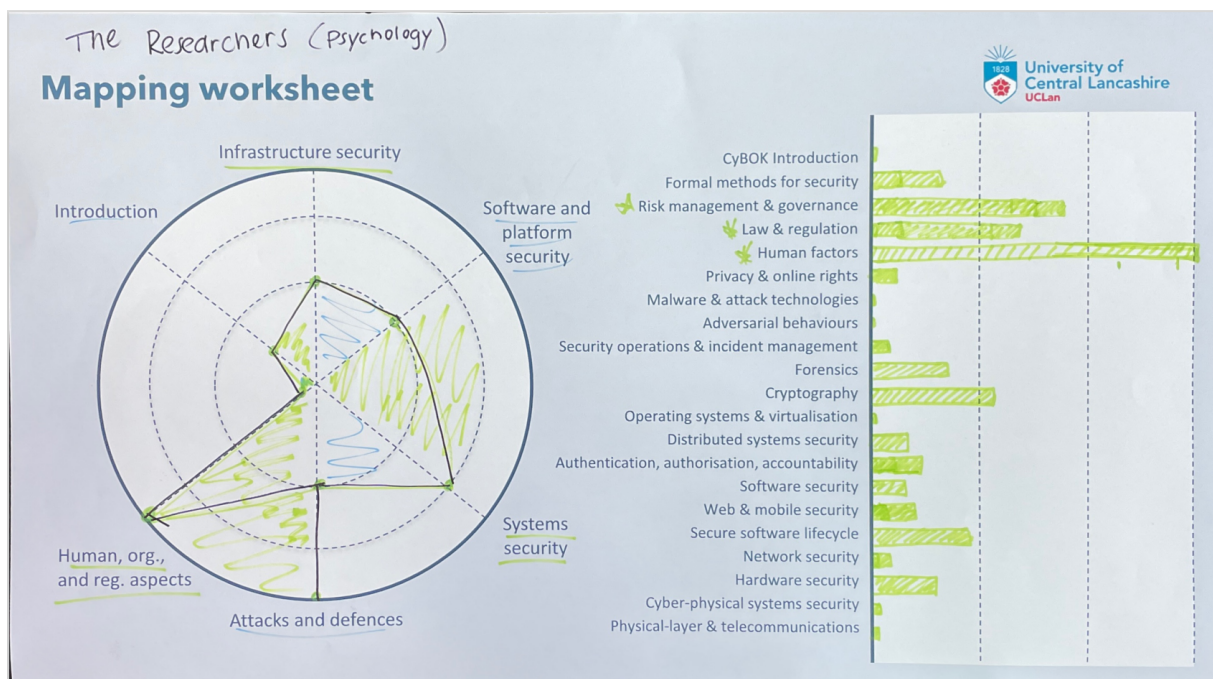 The Researchers (Psychology)
Mapping worksheet
1828
University of
Central Lancashire
UCLan
Infrastructure security
Introduction
Software and
platform
security
Systems
security
Human, org.,
and reg. aspects
Attacks and defences
CyBOK Introduction
Formal methods for security
Risk management & governance
Law & regulation
Human factors
Privacy & online rights
Malware & attack technologies
Adversarial behaviours
Security operations & incident management
Forensics
Cryptography
Operating systems & virtualisation
Distributed systems security
Authentication, authorisation, accountability
Software security
Web & mobile security
Secure software lifecycle
Network security
Hardware security
Cyber-physical systems security
Physical-layer & telecommunications